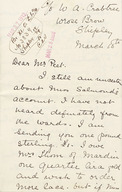 c/o W. A. Crabtree
Wrose Brow
Shipley
March 16th
Dear Mr Peet.
I still am uncertain
about Miss Salmond's
account. I have not
heard definately from
the wards. I am
sending you one pound
sterling. Is I owe
Mrs Thom of Mardin
one quarter are gold
and wish to order
more lace. but if Mrs